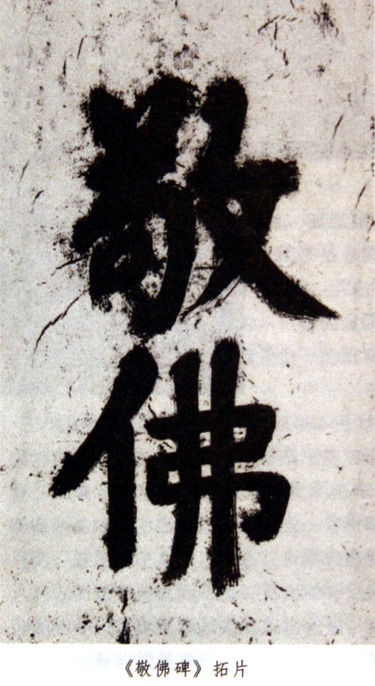 敬
佛
《敬佛碑》拓片